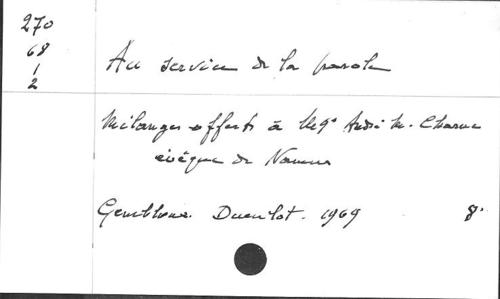 270
68
1
2
Au service de la parole
Mélanges offerts à Mgr André M. Charue
évêque de Namur
Gembloux. Duculot. 1969 8°